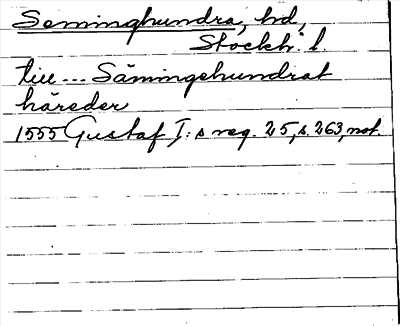 Seminghundra, hd,
Stockh. l.
till ... Sämingehundrat
häreder
1555 Gustaf I:s reg. 25, s. 263, not.